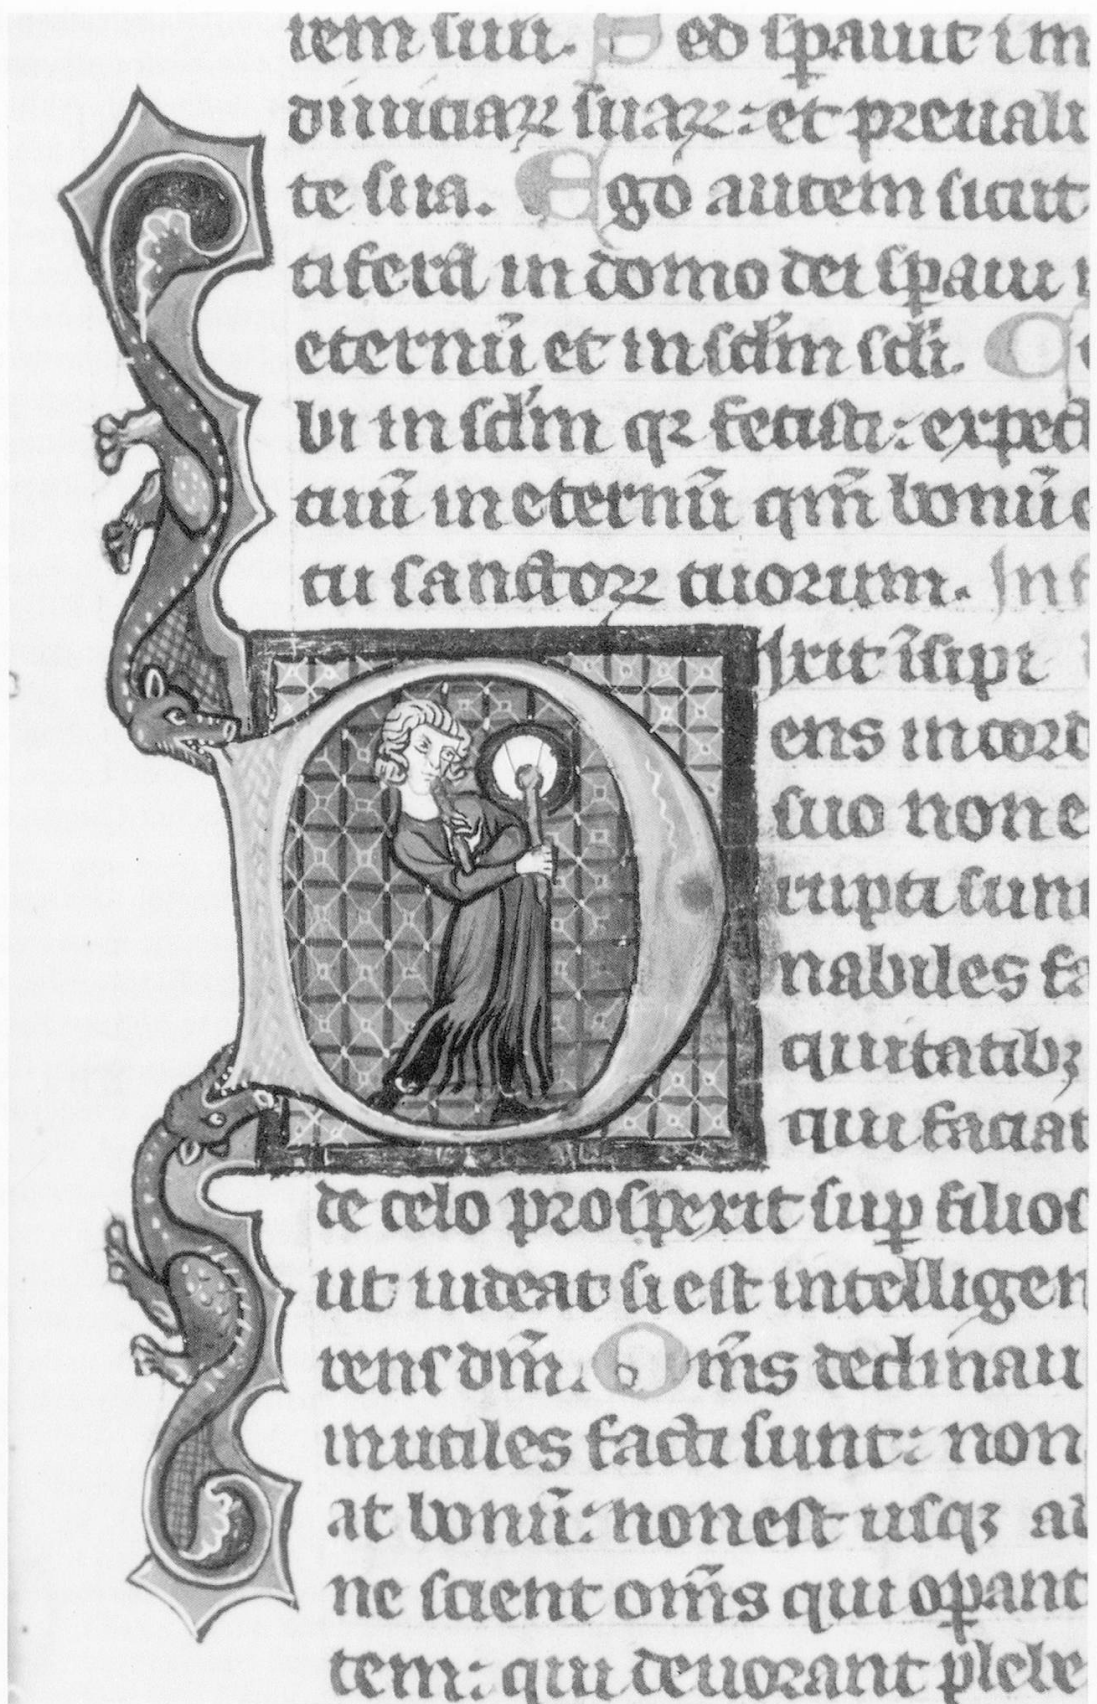 rem suū. Sed sp̄auit i m
diuiciaꝝ suaꝝ: et preualu
te sua. Ego autem sicut
tifera in domo dei sp̄aui
eternū et in scl̄m scl̄i. C
bi in scl̄m qꝛ fecisti: expect
tuū in eternū qm̄ bonū e
tu sanctoꝝ tuorum. In f
D
ixit īsipi
ens in cord
suo non e
rupti sunt
nabiles fa
quitatibꝫ
qui faciat
de celo prosperit suꝑ filios
ut uideat si est intelligen
rens dm̄. Om̄s declinau
inutiles facti sunt: non
at bonū: non est usqꝫ a
ne scient om̄s qui oꝑant
tem: qui deuorant plebe